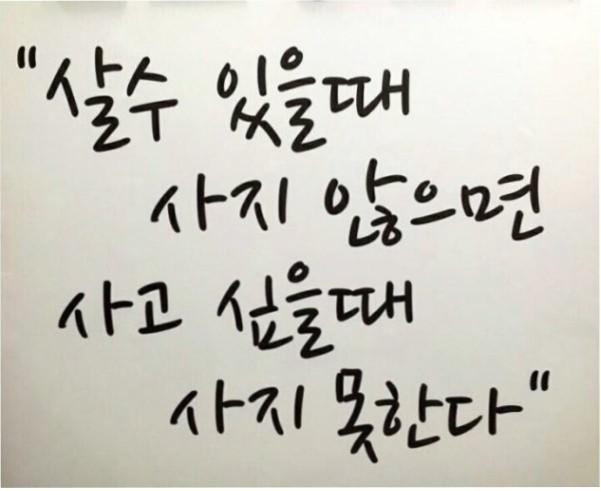 "살수 있을때
사지 않으면
사고 싶을때
사지 못한다"